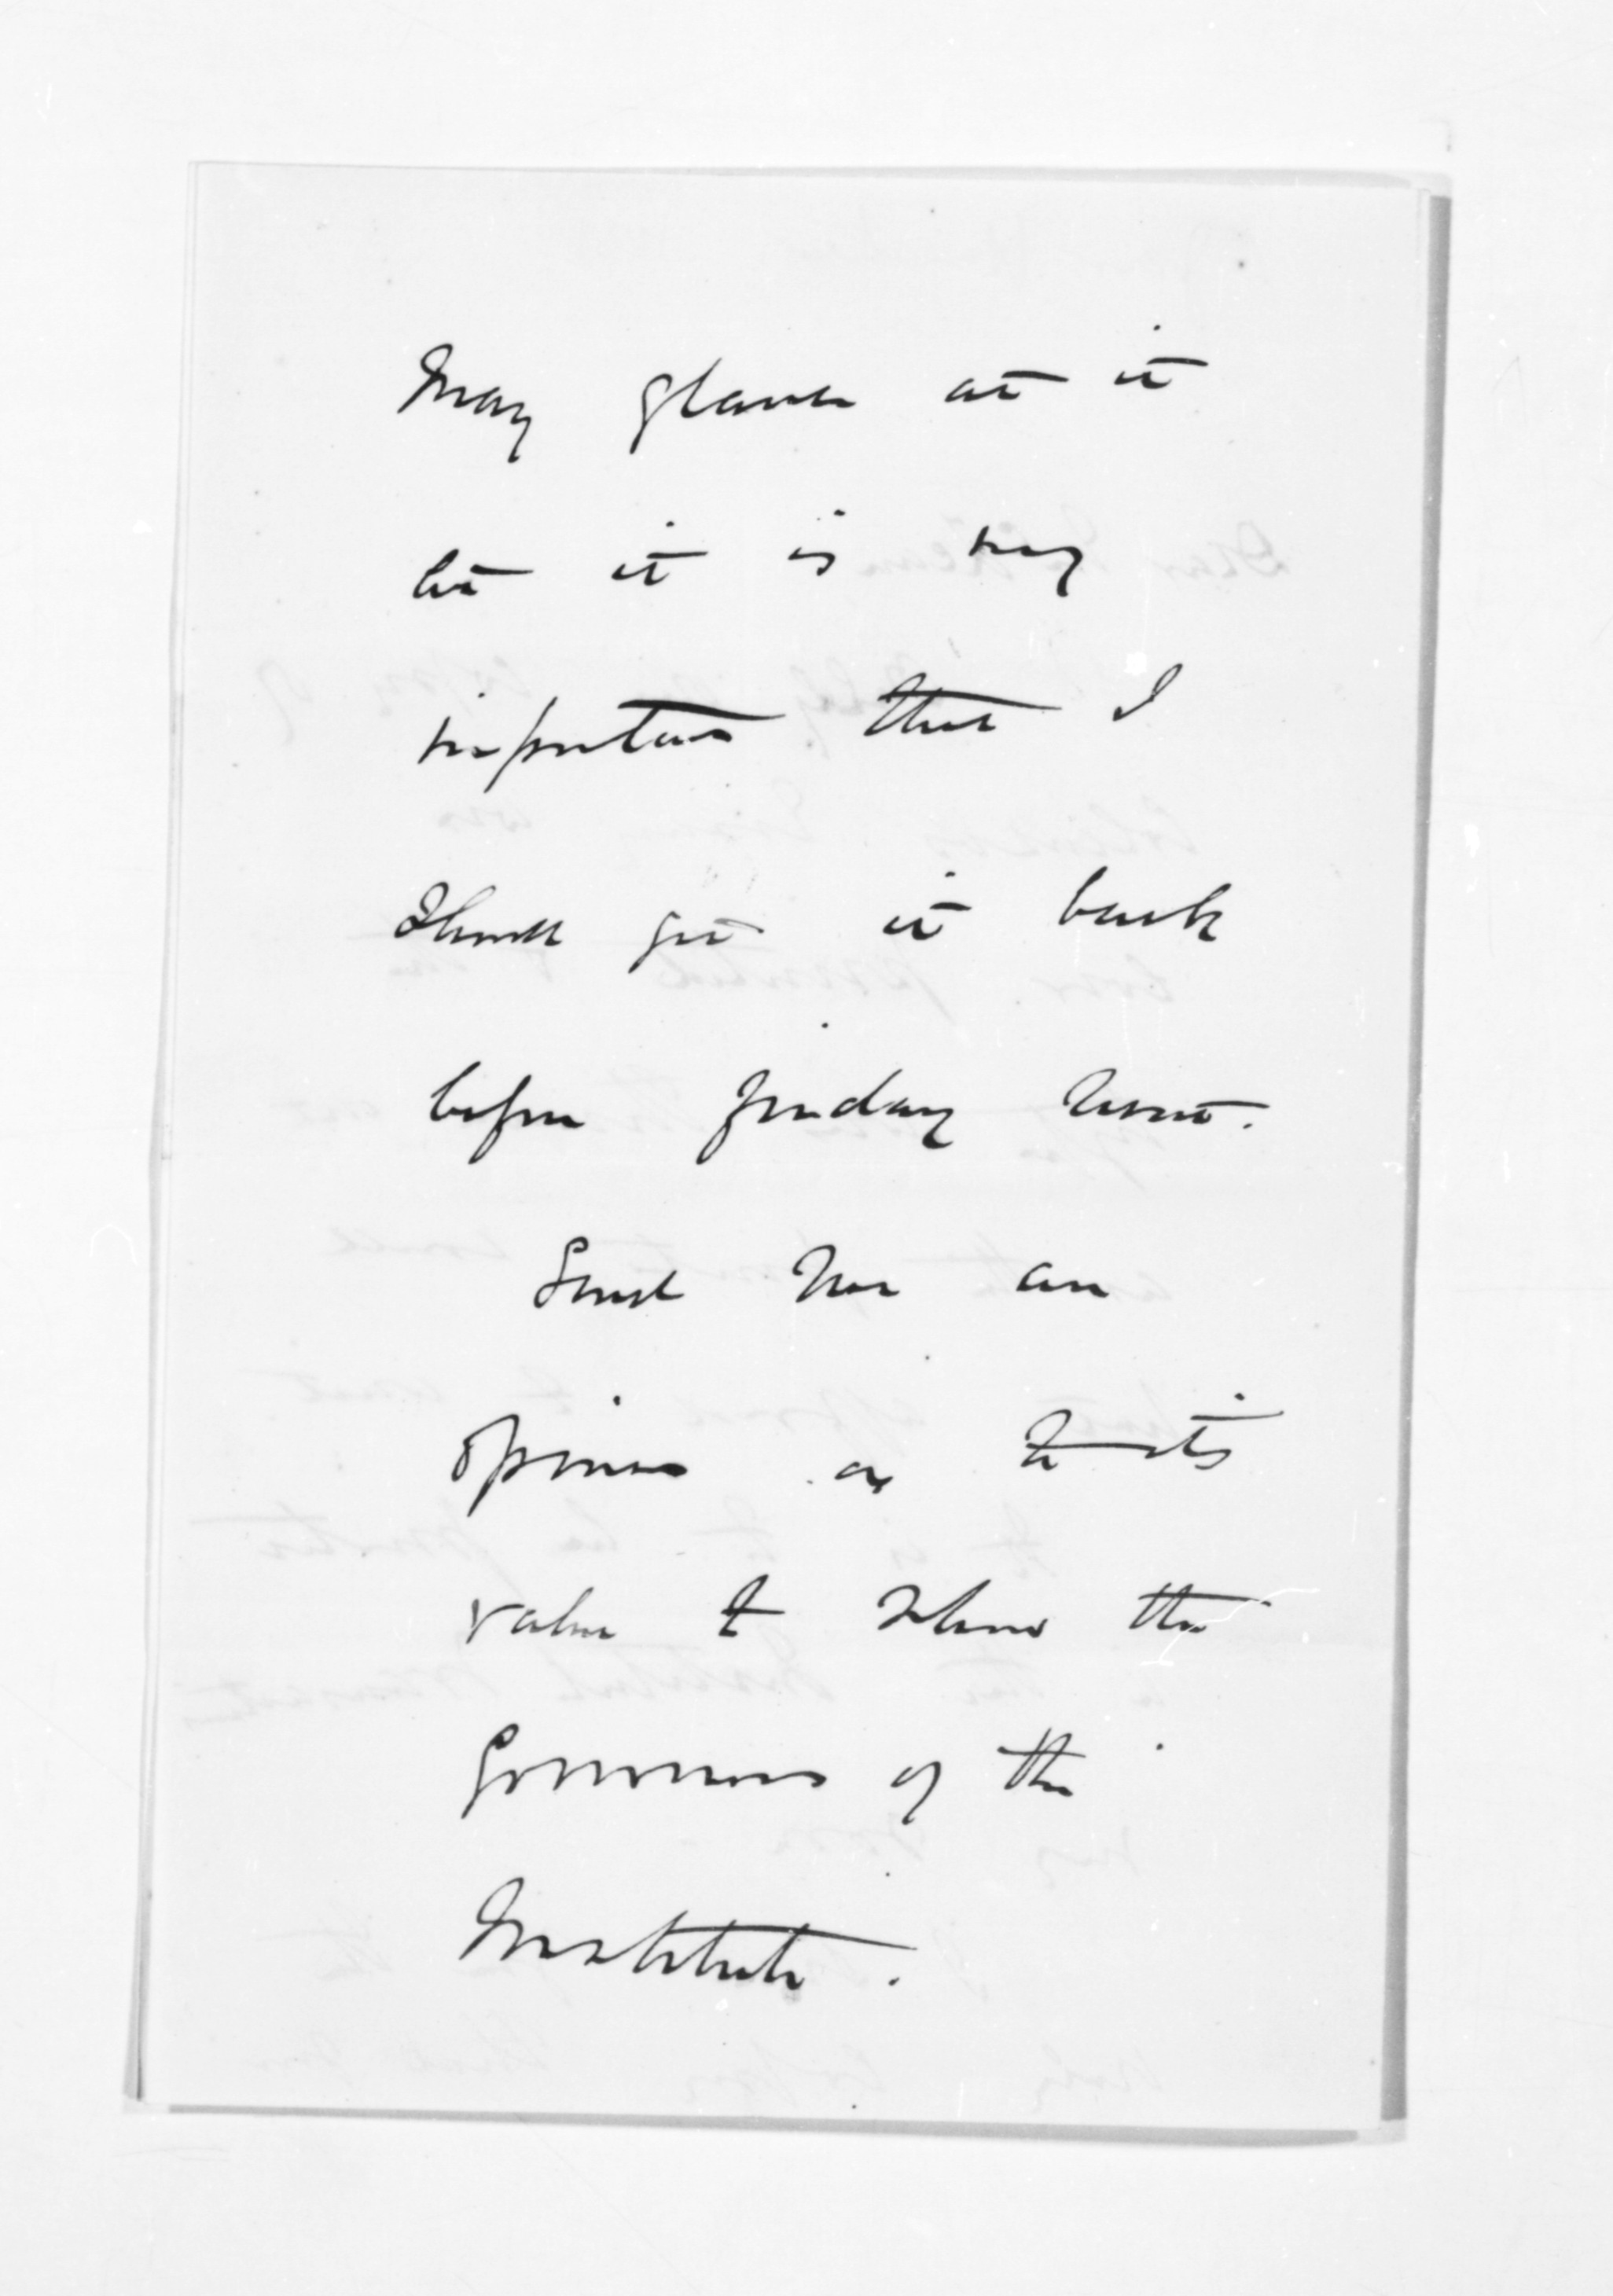 May glance at it
but it is very
important that I
should get it back
before Friday next.
Send me an
opinion as to its
value to show the
Governors of the
Institute.